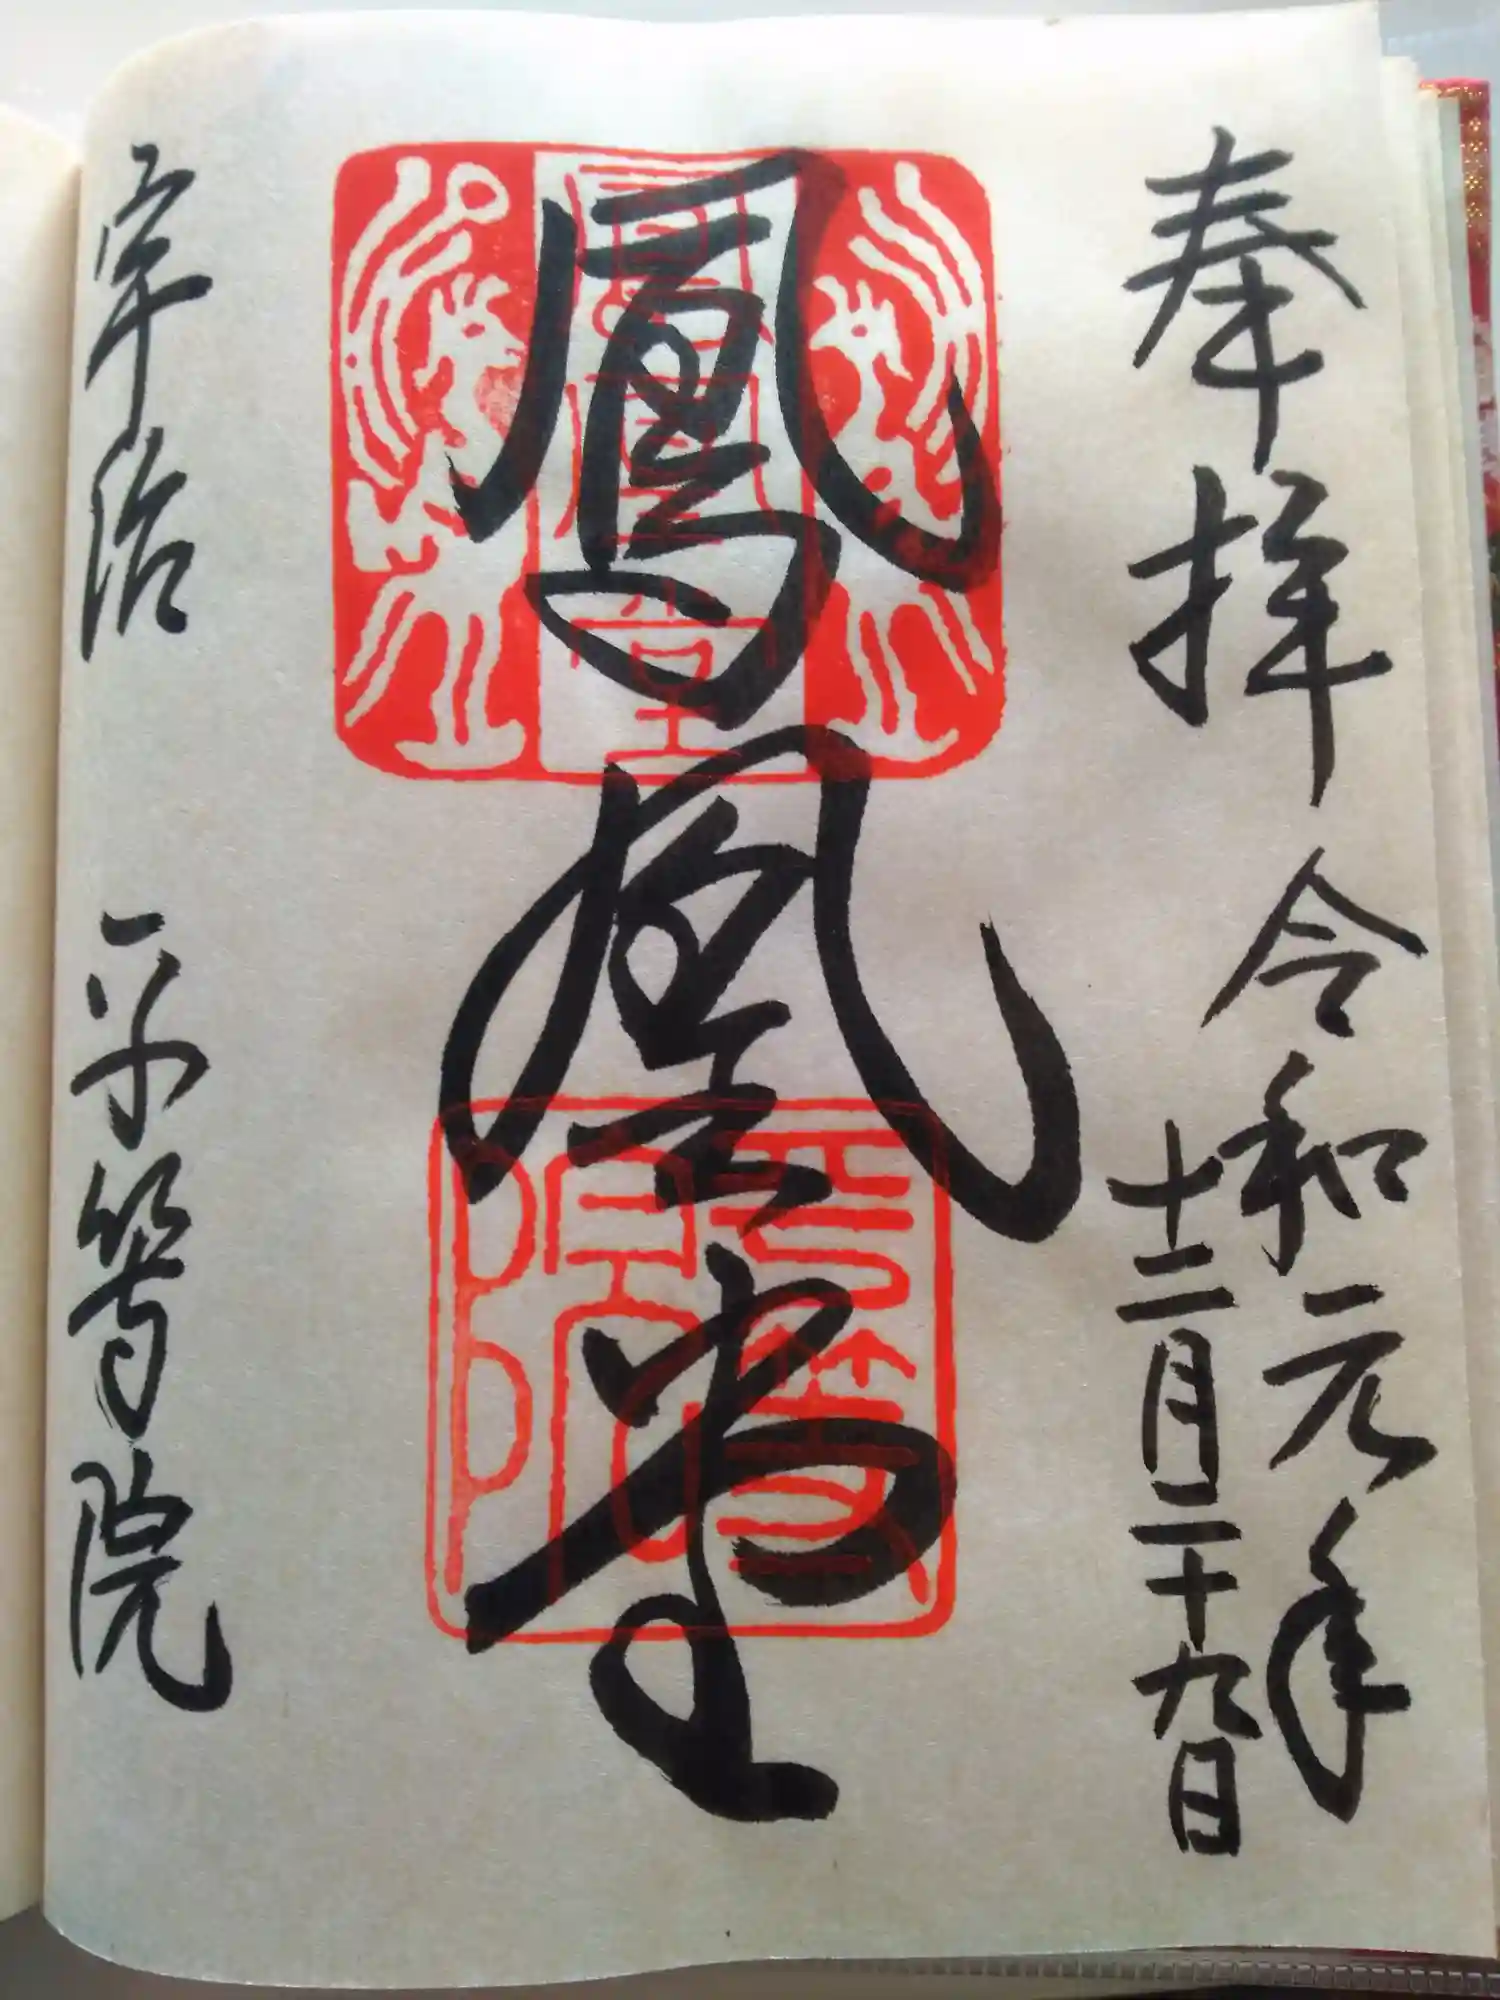 奉拝
令和元年
十二月二十九日
鳳凰堂
鳳凰堂
平等院
宇治 平等院